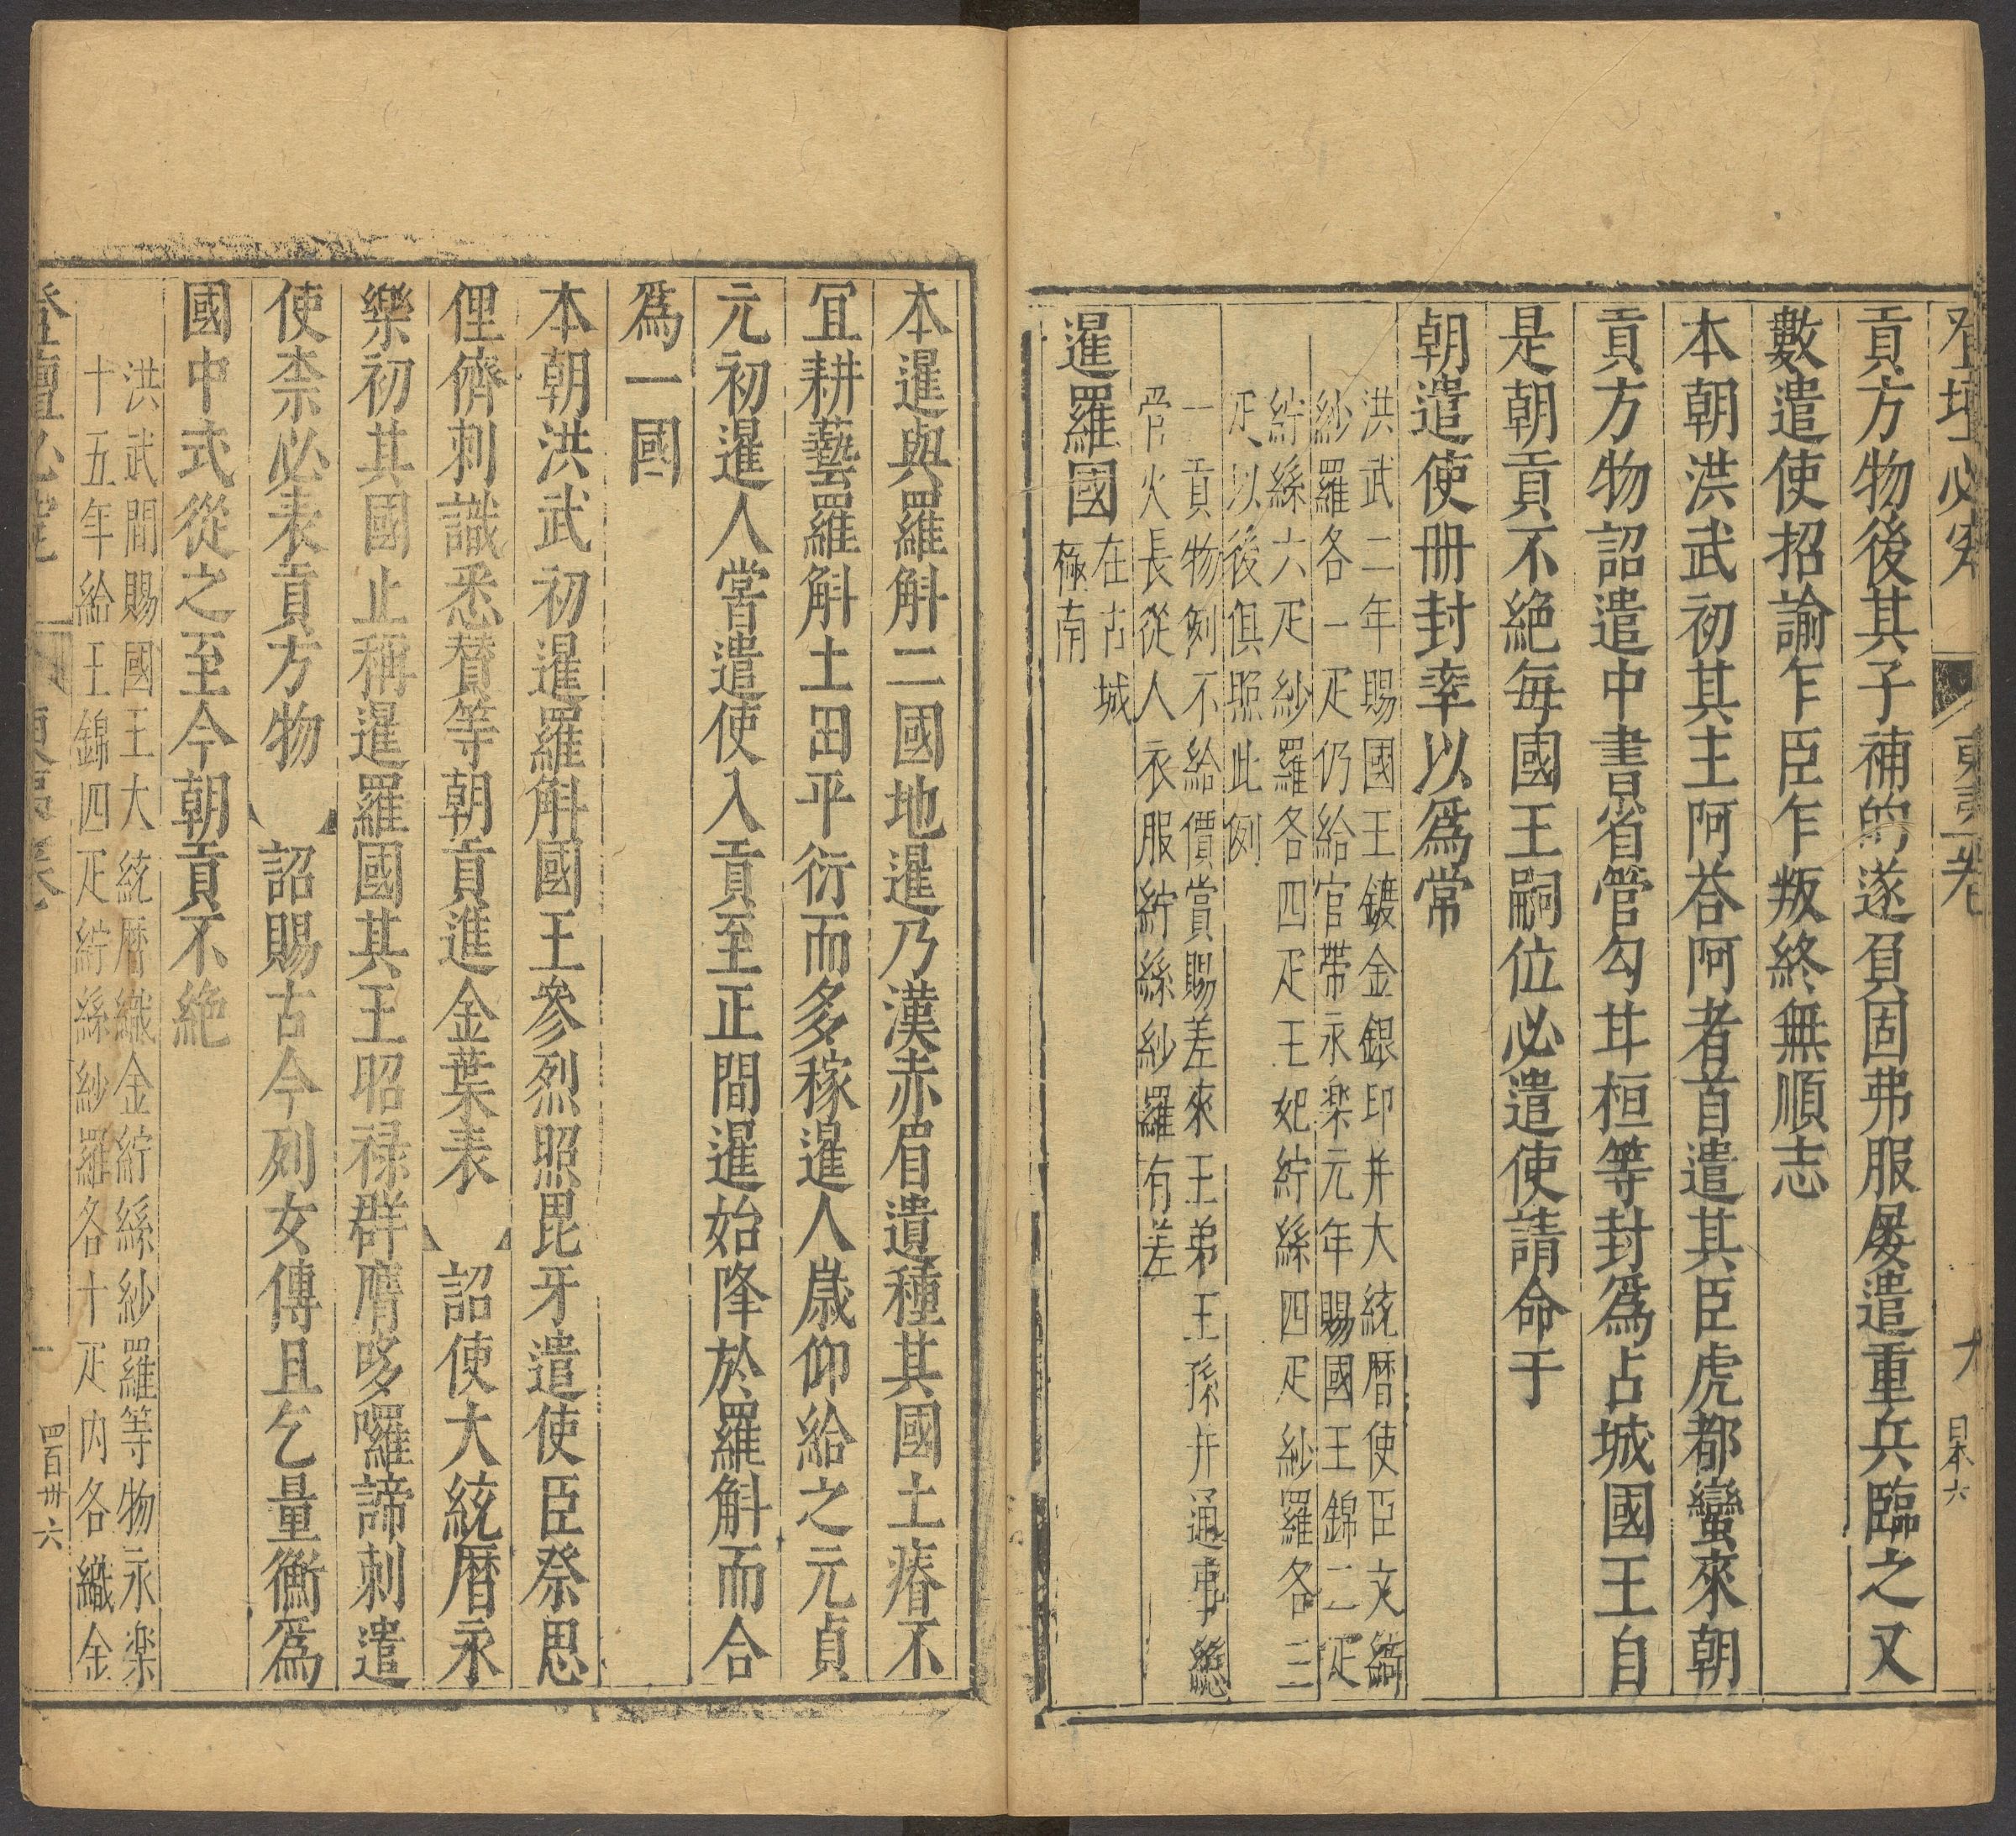 登壇必究
東夷卷
日本六
貢方物後其子補的遂負固弗服屡遣重兵臨之又
數遣使招諭乍臣乍叛終無順志
本朝洪武初其主阿荅阿者首遣其臣虎都蠻來朝
貢方物詔遣中書省管勾甘桓等封爲占城國王自
是朝貢不絶每國王嗣位必遣使請命于
朝遣使册封率以爲常
洪武二年賜國王鍍金銀印并大統曆使臣文綺
紗羅各一疋仍給官帶永楽元年賜國王錦二疋
紵絲六疋紗羅各四疋王妃紵絲四疋紗羅各三
疋以後俱照此例
一貢物例不給價賞賜差來王弟王孫并通事總
管火長從人衣服紵絲紗羅有差
暹羅國
在古城
極南
本暹與羅斛二國地暹乃漢赤眉遺種其國土瘠不
宜耕藝羅斛土田平衍而多稼暹人歳仰給之元貞
元初暹人嘗遣使入貢至正間暹始降於羅斛而合
爲一國
本朝洪武初暹羅斛國王參烈照毘牙遣使臣柰思
俚儕刺識悉替等朝貢進金葉表 詔使大統曆永
樂初其國止稱暹羅國其王昭禄群膺哆囉諦刺遣
使柰必表貢方物 詔賜古今列女傳且乞量衡爲
國中式從之至今朝貢不絶
洪武間賜國王大統曆織金紵絲紗羅等物永楽
十五年給王錦四疋紵絲紗羅各十疋内各織金
登壇必究
東夷卷
四百卅六